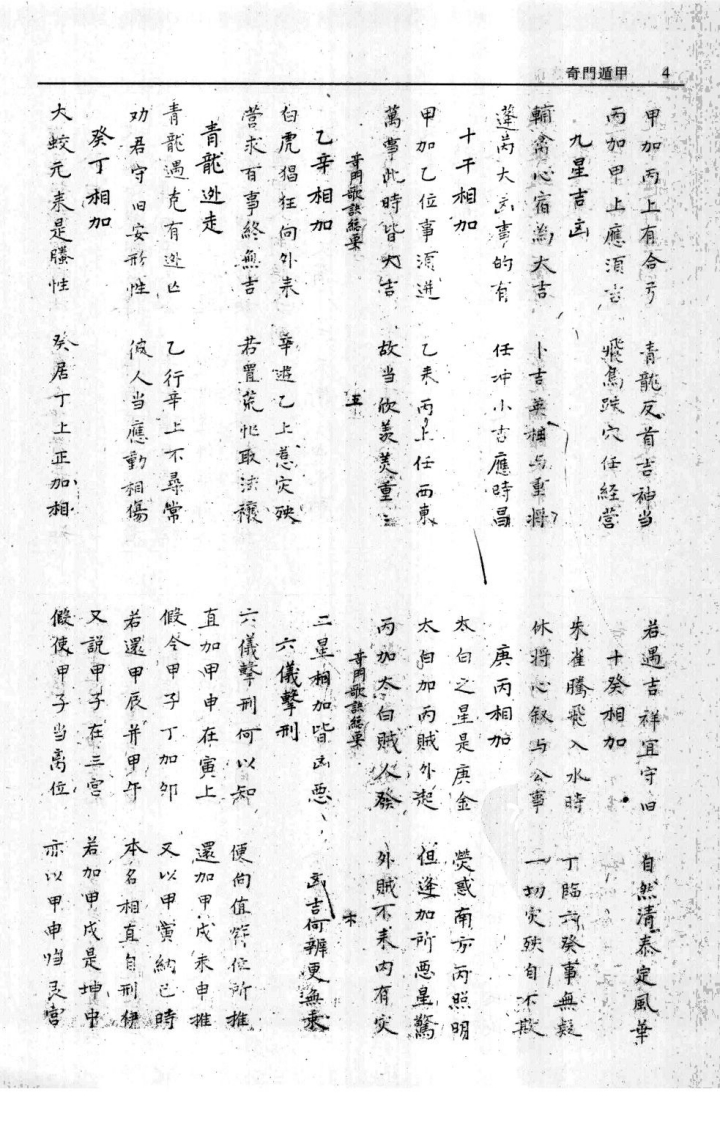 奇門遁甲 4
甲加丙上有合亏 青龍反首吉神当
丙加甲上應須吉 飛鳥跌穴任經营
九星吉凶
輔禽心宿為大吉 卜吉英柱与重将
蓬芮大凶事的有 任冲小吉應時昌
十干相加
甲加乙位事須进 乙来丙上任西東
萬事此時皆大吉 故当欣羡美重:
奇門歌訣總要 五
乙辛相加
白虎猖狂向外来 辛逰乙上惹灾殃
营求百事終無吉 若置荒地取法禳
青龍逃走
青龍遇克有逃亡 乙行辛上不尋常
劝君守旧安形性 彼人当應動相傷
癸丁相加
大蛟元来是騰性 癸居丁上正加相
若遇吉祥宜守旧 自然清泰定風華
十癸相加
朱雀騰飛入水時 丁臨六癸事無疑
休将心叙与公事 一切灾殃自不欺
庚丙相加
太白之星是庚金 熒惑南方丙照明
太白加丙賊外起 但逢加所惡星驚
丙加太白賊人發 外賊不来内有灾
奇門歌訣總要 六
二星相加皆凶惡 凶吉何辨更無乘
六儀擊刑
六儀擊刑何以知 便向值符位所推
直加甲申在寅上 還加甲戌未申推
假令甲子丁加卯 又以甲寅納巳時
若還甲辰并甲午 本名相直自刑伊
又説甲子在三宮 若加甲戌是坤中
假使甲子当离位 亦以甲申临艮宮